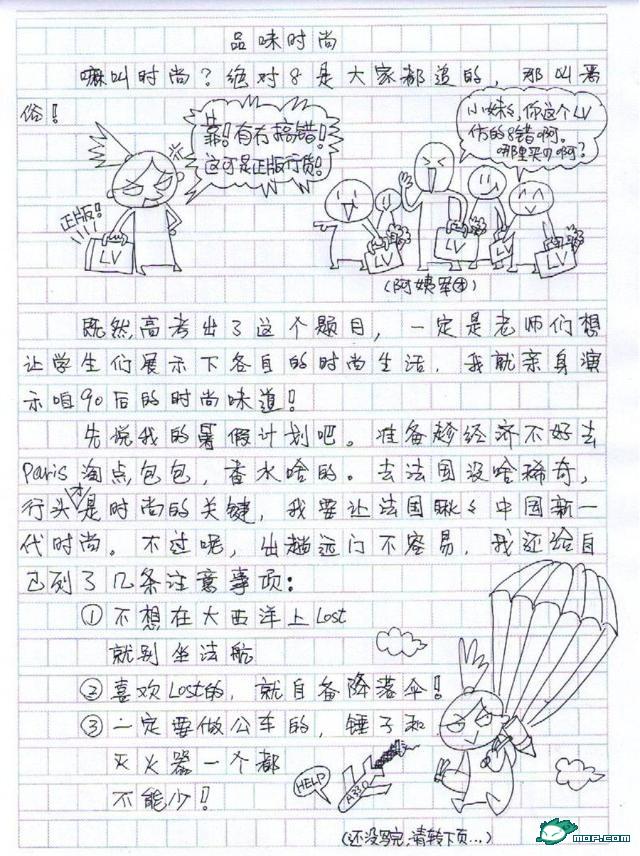 品味时尚
嘛叫时尚？绝对8是大家都追的，那叫恶
俗！
靠！有冇搞错！
这可是正版行货！
正版！
LV
小妹々，你这个LV
仿的8错啊。
哪里买的啊？
LV
LV
LV
LV
（阿姨军团）
既然，高考出了这个题目，一定是老师们想
让学生们展示下各自的时尚生活，我就亲身演
示咱90后的时尚味道！
先说我的暑假计划吧。准备趁经济不好去
Paris淘点包包，香水啥的。去法国没啥稀奇，
行头才是时尚的关键，我要让法国瞅々中国新一
代时尚。不过呢，出趟远门不容易，我还给自
己列了几条注意事项：
①不想在大西洋上Lost
就别坐法航
②喜欢Lost的，就自备降落伞！
③一定要做公车的，锤子和
灭火器一个都
不能少！
HELP
A330
（还没写完，请转下页...）
mop.com